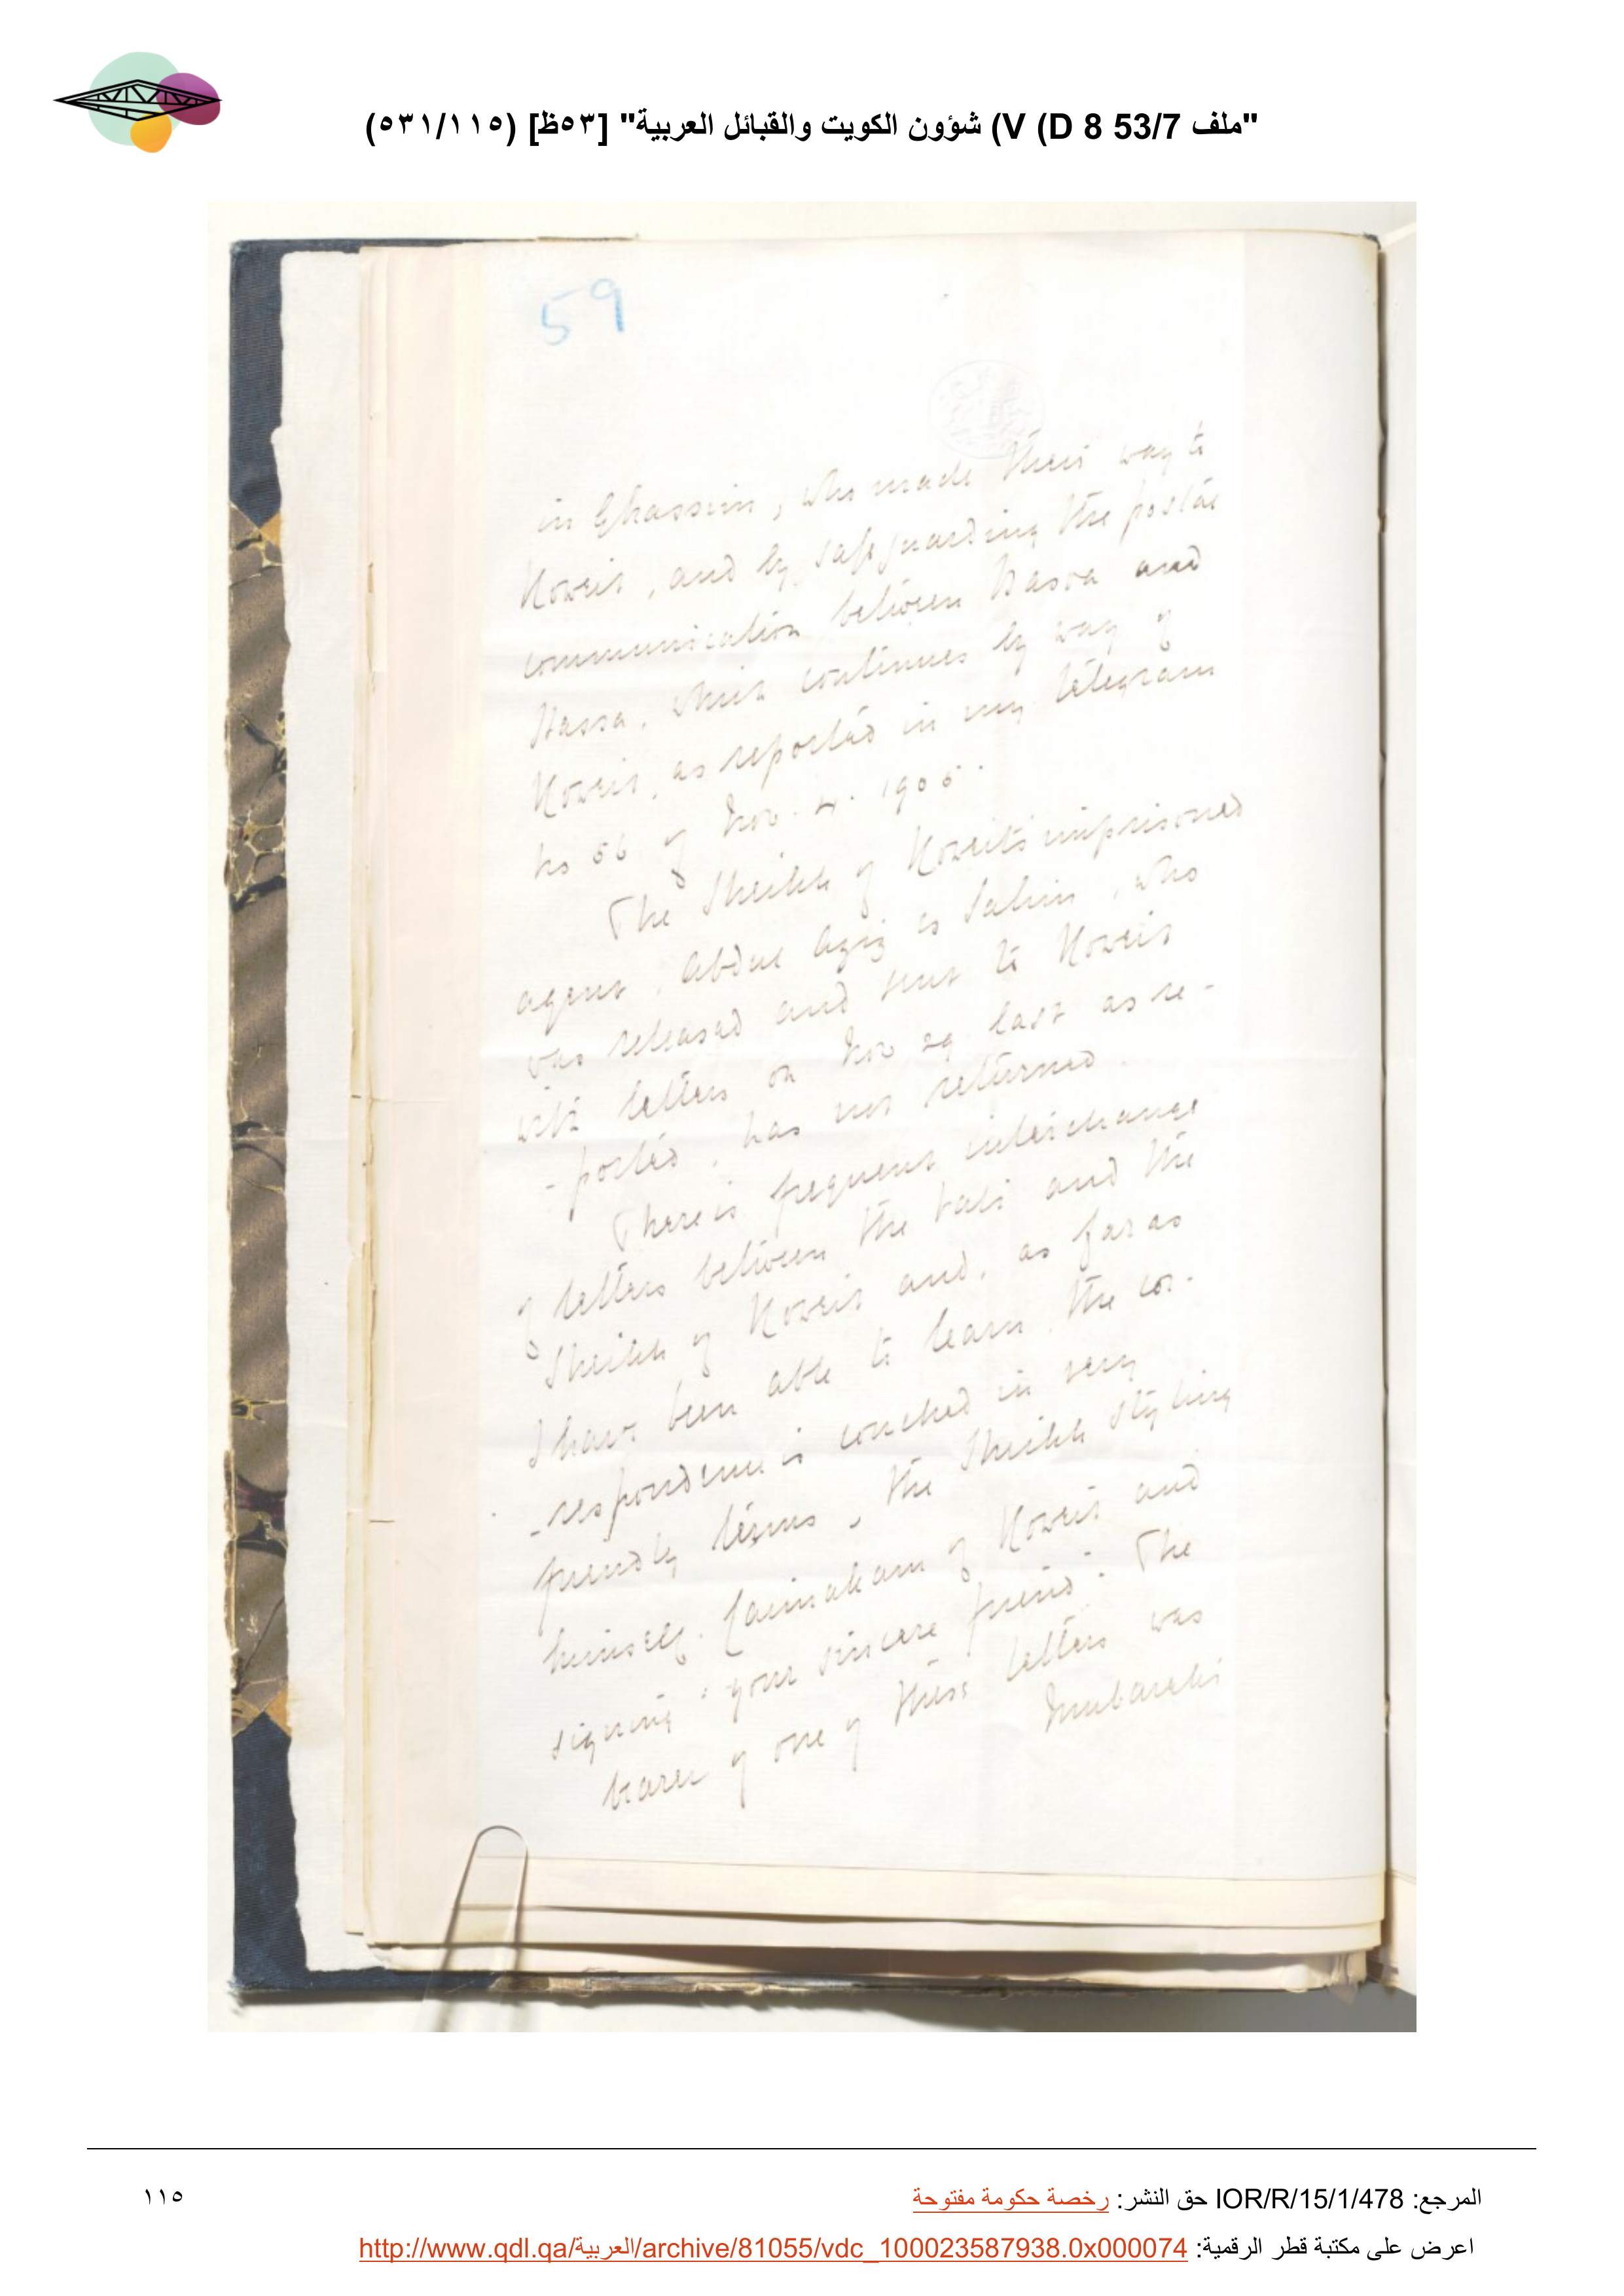 "ملف 53/7 V (D 8) شؤون الكويت والقبائل العربية" [٥٣ظ] (٥٣١/١١٥)
59
in Ghassim, who made their way to
Koweit, and by safeguarding the postal
communication between Basra and
Hassa, which continues by way of
Koweit, as reported in my telegram
No 56 of Nov. 4. 1905.
The Sheikh of Koweit's imprisoned
agent, Abdul Aziz es Salim, who
was released and sent to Koweit
with letters on Nov 29 last as re-
-ported, has not returned.
There is frequent interchange
of letters between the Vali and the
Sheikh of Koweit and, as far as
I have been able to learn, the cor-
-respondence is couched in very
friendly terms, the Sheikh styling
himself Caimakam of Koweit and
signing "your sincere friend". The
bearer of one of these letters was
Mubarak's
المرجع: IOR/R/15/1/478 حق النشر: رخصة حكومة مفتوحة
١١٥
اعرض على مكتبة قطر الرقمية: http://www.qdl.qa/العربية/archive/81055/vdc_100023587938.0x000074